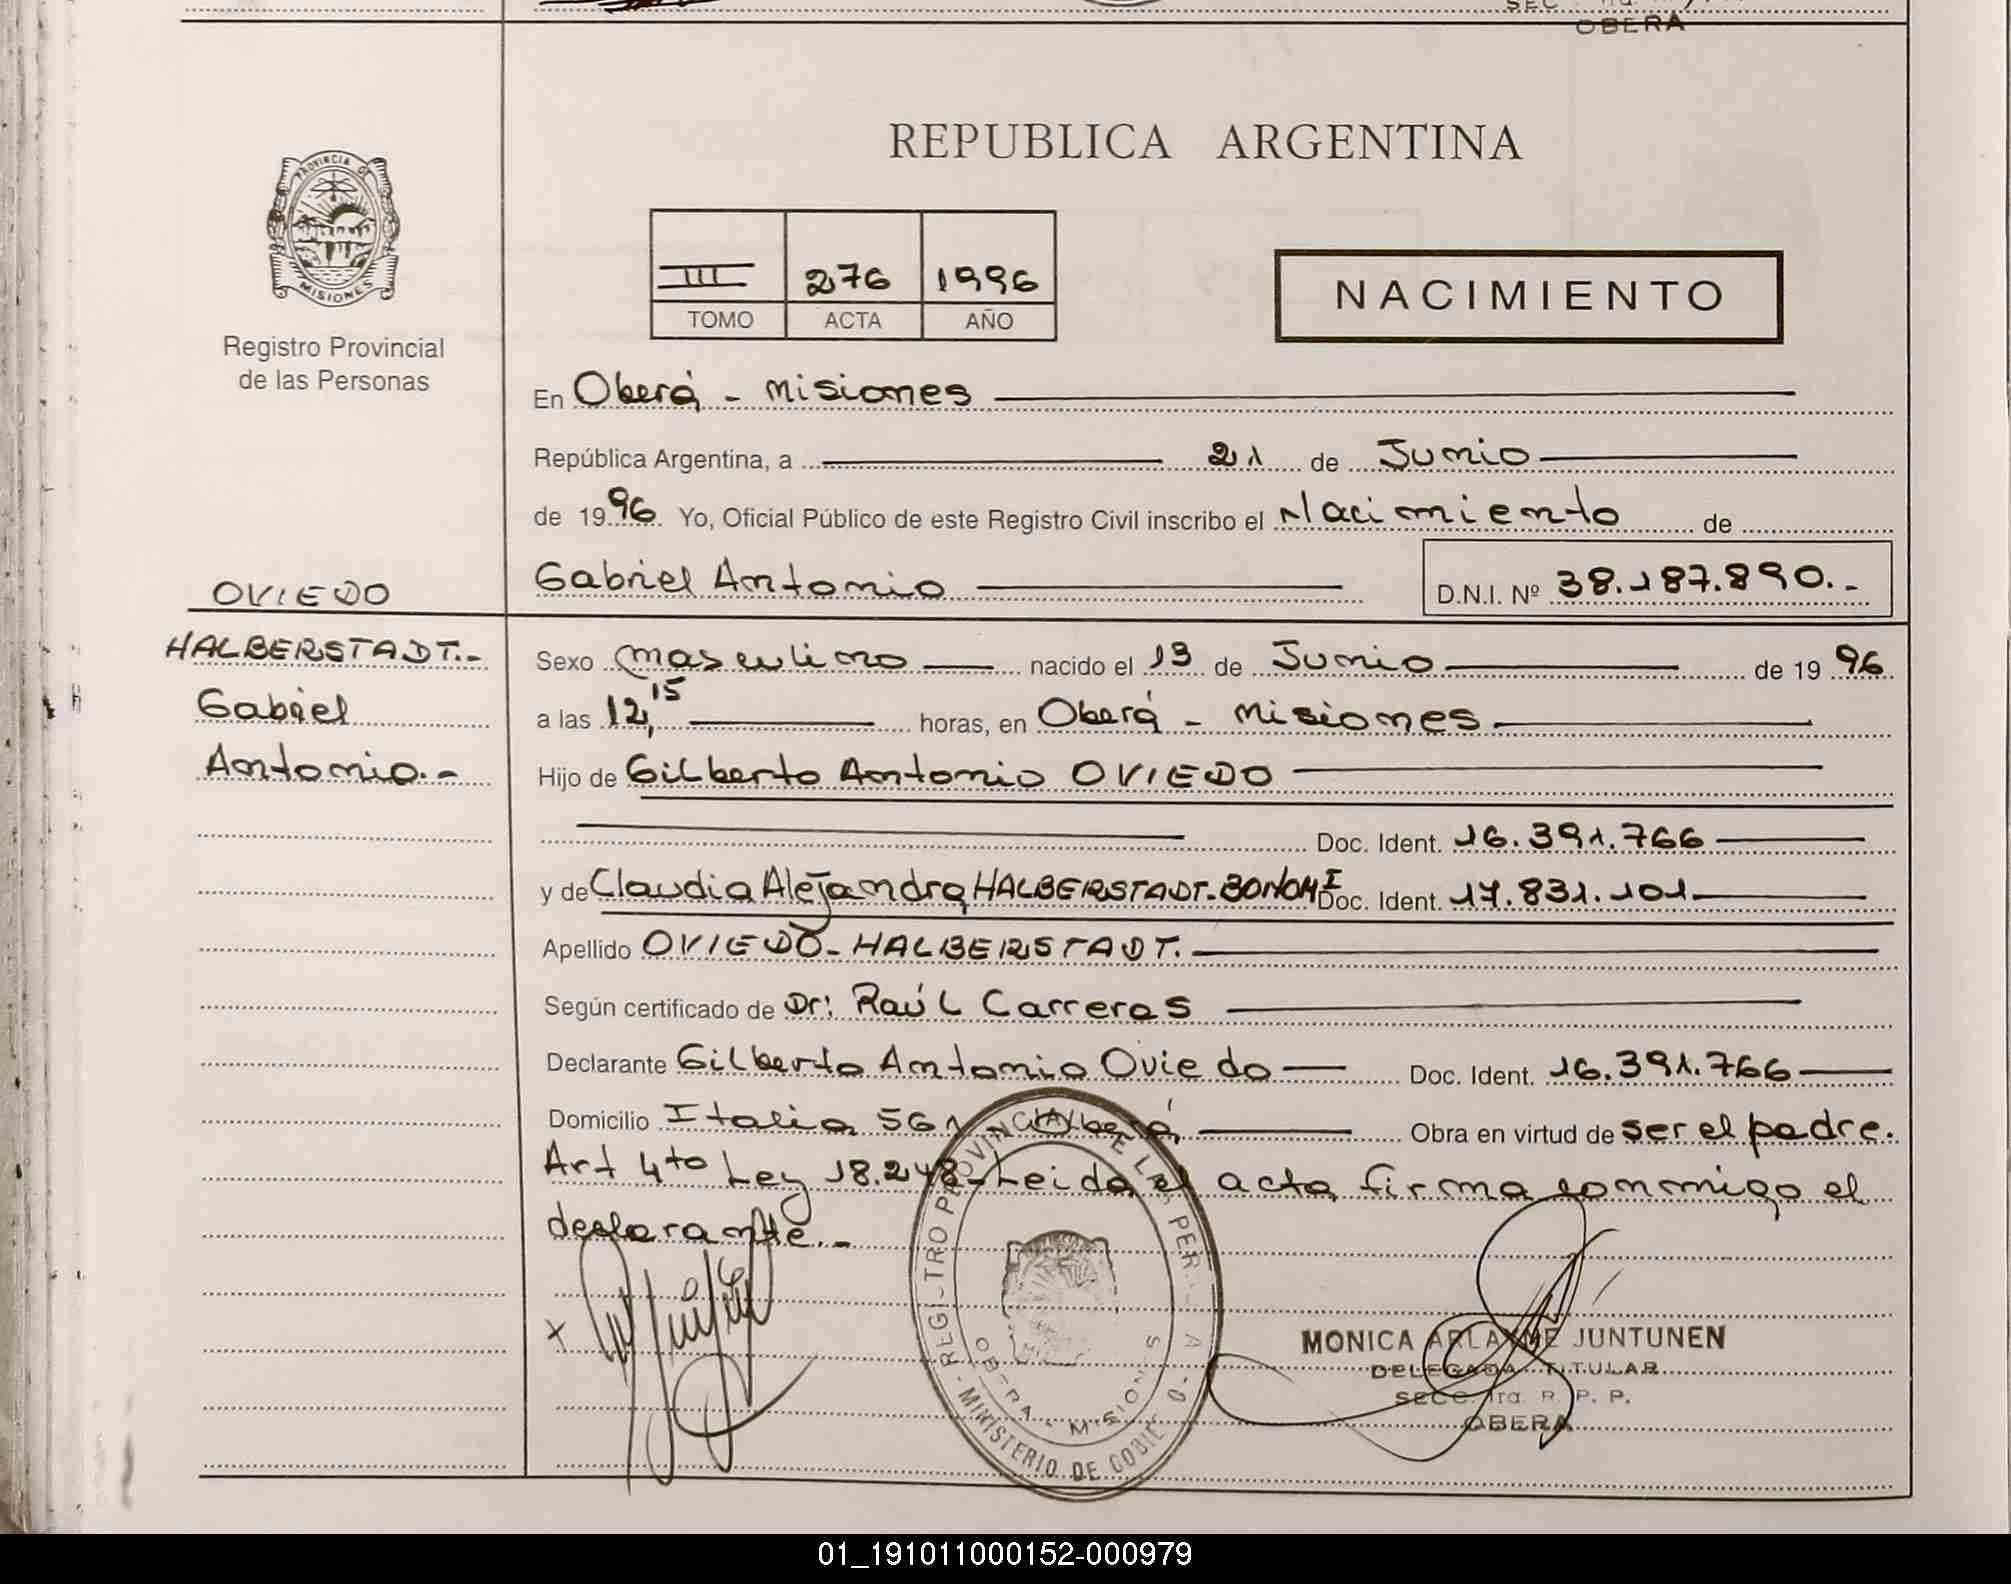 SEC
OBERA
PROVINCIA DE
MISIONES
Registro Provincial
de las Personas
REPUBLICA ARGENTINA
III 276 1996
TOMO ACTA AÑO
NACIMIENTO
En Oberá - Misiones
República Argentina, a 21 de Junio
de 1996 Yo, Oficial Público de este Registro Civil inscribo el Nacimiento de
Gabriel Antonio D.N.I. Nº 38.187.890.-
OVIEDO
HALBERSTADT.-
Gabriel
Antonio.-
Sexo masculino nacido el 13 de Junio de 1996
a las 12,15 horas, en Oberá - Misiones
Hijo de Gilberto Antonio OVIEDO
Doc. Ident. 16.391.766
y de Claudia Alejandra HALBERSTADT.BONOMI Doc. Ident. 17.831.101
Apellido OVIEDO-HALBERSTADT.
Según certificado de Dr: Raúl Carreras
Declarante Gilberto Antonio Oviedo Doc. Ident. 16.391.766
Domicilio Italia 561 Oberá Obra en virtud de ser el padre.
Art 4to Ley 18.248-Leida el acta firma conmigo el
declarante.-
REGISTRO PROVINCIAL DE LAS PER A
OBERA - MISIONES
- MINISTERIO DE GOBIE O -
MONICA ARLAINE JUNTUNEN
DELEGADA TITULAR
SECC. 1ra. R. P. P.
OBERA
01_191011000152-000979